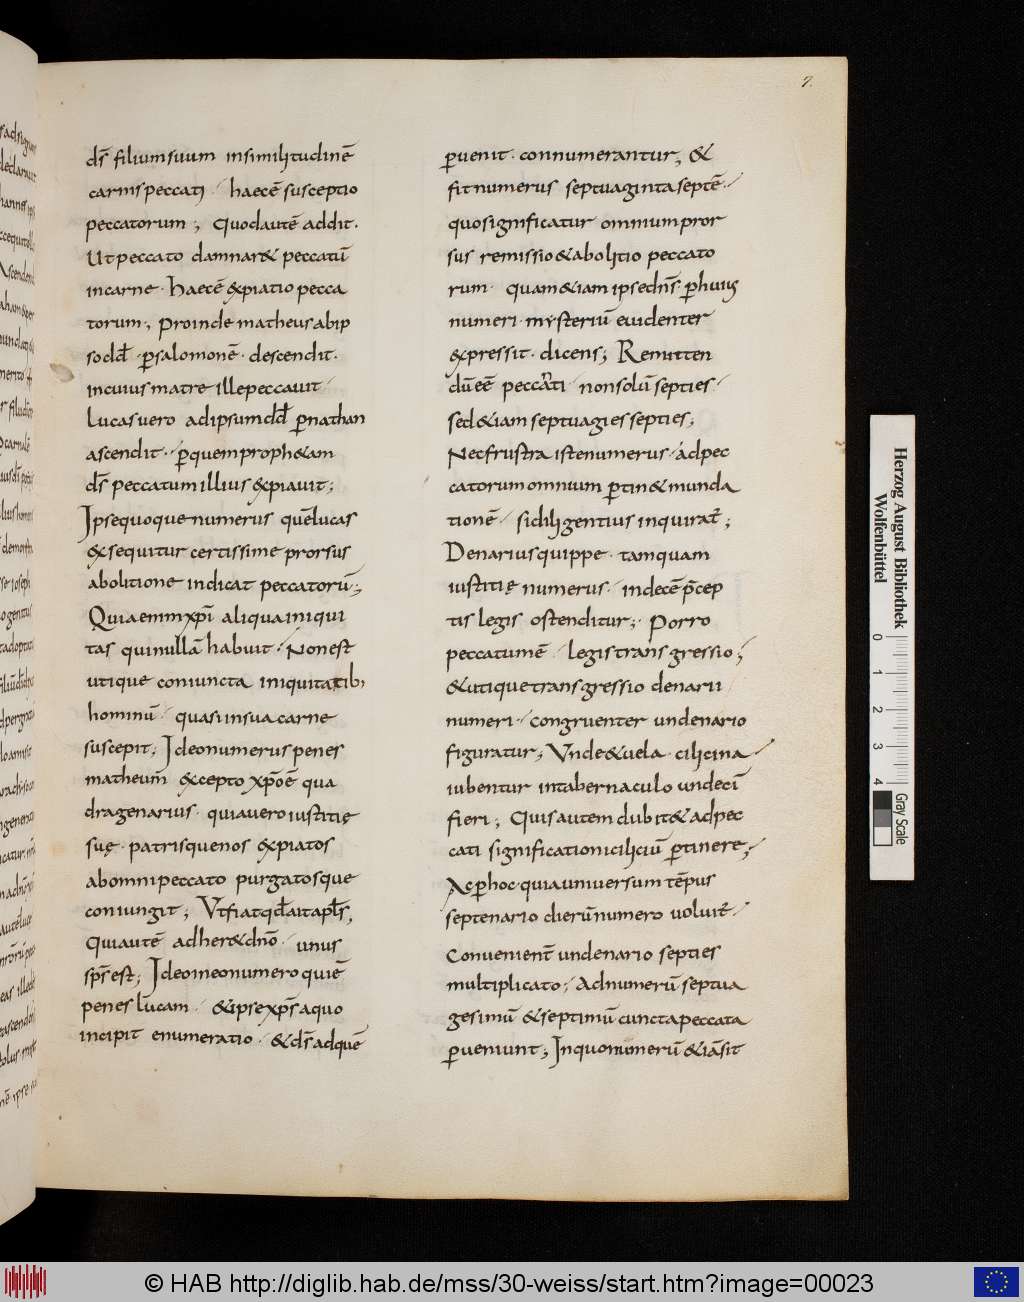 7.
dꝭ filium suum in similitudinē
carnis peccati · haec ē susceptio
peccatorum; Quod autē addit ·
Ut peccato damnar& peccatū
in carne · haec ē expiatio pecca
torum; Proinde matheus ab ip
so dd · ꝑ salomonē · descendit ·
in cuius matre ille peccauit ·
Lucas uero ad ipsum dd ꝑ nathan
ascendit · ꝑ quem proph&am
dꝭ peccatum illius expiauit;
Ipse quoque numerus quē lucas
exsequitur certissime prorsus
abolitione indicat peccatorū;
Quia enim xp̄i aliqua iniqui
tas qui nullā habuit · Non est
utique coniuncta iniquitatib;
hominū · quas in sua carne
suscepit; Ideo numerus penes
matheum̄ excepto xp̄o ē qua
dragenarius · quia uero iustitię
suę · patrisque nos expiatos
ab omni peccato purgatosque
coniungit; Ut fiat qđ ait apłs,
Qui autē adher& dn̄o · unus
sps̄ est; Ideo in eo numero qui ē
penes lucam · & ipse xps̄ a quo
incipit enumeratio · & dꝭ ad quē
ꝑuenit · connumerantur, &
fit numerus septuaginta septē ·
quo significatur omnium pror
sus remissio & abolitio peccato
rum · quam &iam ipse dn̄s · ꝑ huius
numeri mysteriū euidenter
expressit · dicens; Remitten
dū eē peccanti · non solū septies ·
sed &iam septuagies septies;
Nec frustra iste numerus · ad pec
catorum omnium ꝑtin& munda
tionē · si diligentius inquirat̄;
Denarius quippe · tamquam
iustitię numerus · in decē p̄cep
tis legis ostenditur; Porro
peccatum ē · legis transgressio;
& utique transgressio denarii
numeri · congruenter undenario
figuratur; Unde & uela · cilicina
iubentur in tabernaculo undecī
fieri; Quis autem dubit& ad pec
cati significationi ciliciū ꝑtinere;
Ac ꝑ hoc · quia uniuersum tēpus
septenario dierū numero uoluit̄ ·
Conuenient̄ undenario septies
multiplicato; Ad numerū septua
gesimū & septimū cuncta peccata
ꝑueniunt; In quo numerū &iā sit
Herzog August Bibliothek
Wolfenbüttel
0 1 2 3 4
Gray Scale
© HAB http://diglib.hab.de/mss/30-weiss/start.htm?image=00023